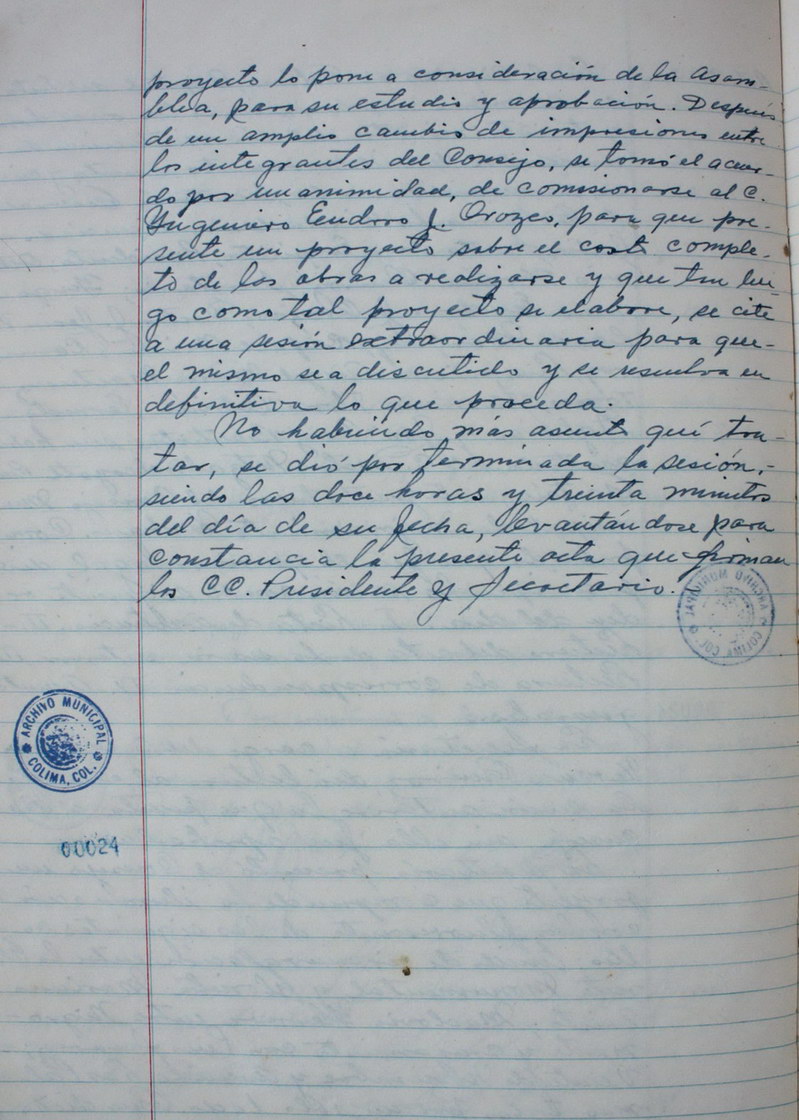 proyecto lo pone a consideración de la Asam-
blea, para su estudio y aprobación. Después
de un amplio cambio de impresiones entre
los integrantes del Consejo, se tomó el acuer-
do por unanimidad, de comisionarse al C.
Ingeniero Eudoro J. Orozco, para que pre-
sente un proyecto sobre el costo comple-
to de las obras a realizarse y que tan lue-
go como tal proyecto se elabore, se cite
a una sesión extraordinaria para que-
el mismo sea discutido y se resuelva en
definitiva lo que proceda.
No habiendo más asunto qué tra-
tar, se dió por terminada la sesión,-
siendo las doce horas y treinta minutos
del día de su fecha, levantándose para
constancia la presente acta que firman
los CC. Presidente y Secretario.
ARCHIVO MUNICIPAL
COLIMA, COL.
00024